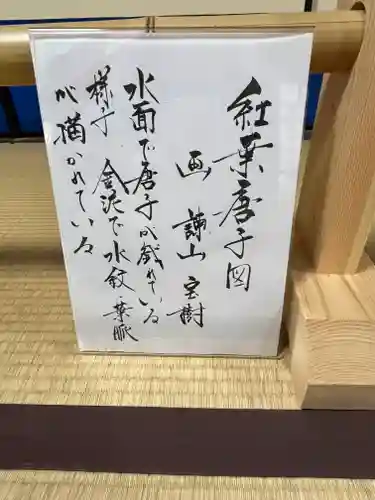 紅葉唐子図
画 諫山 宝樹
水面で唐子が戯れている
様子 金泥で水紋、葉脈
が描かれている